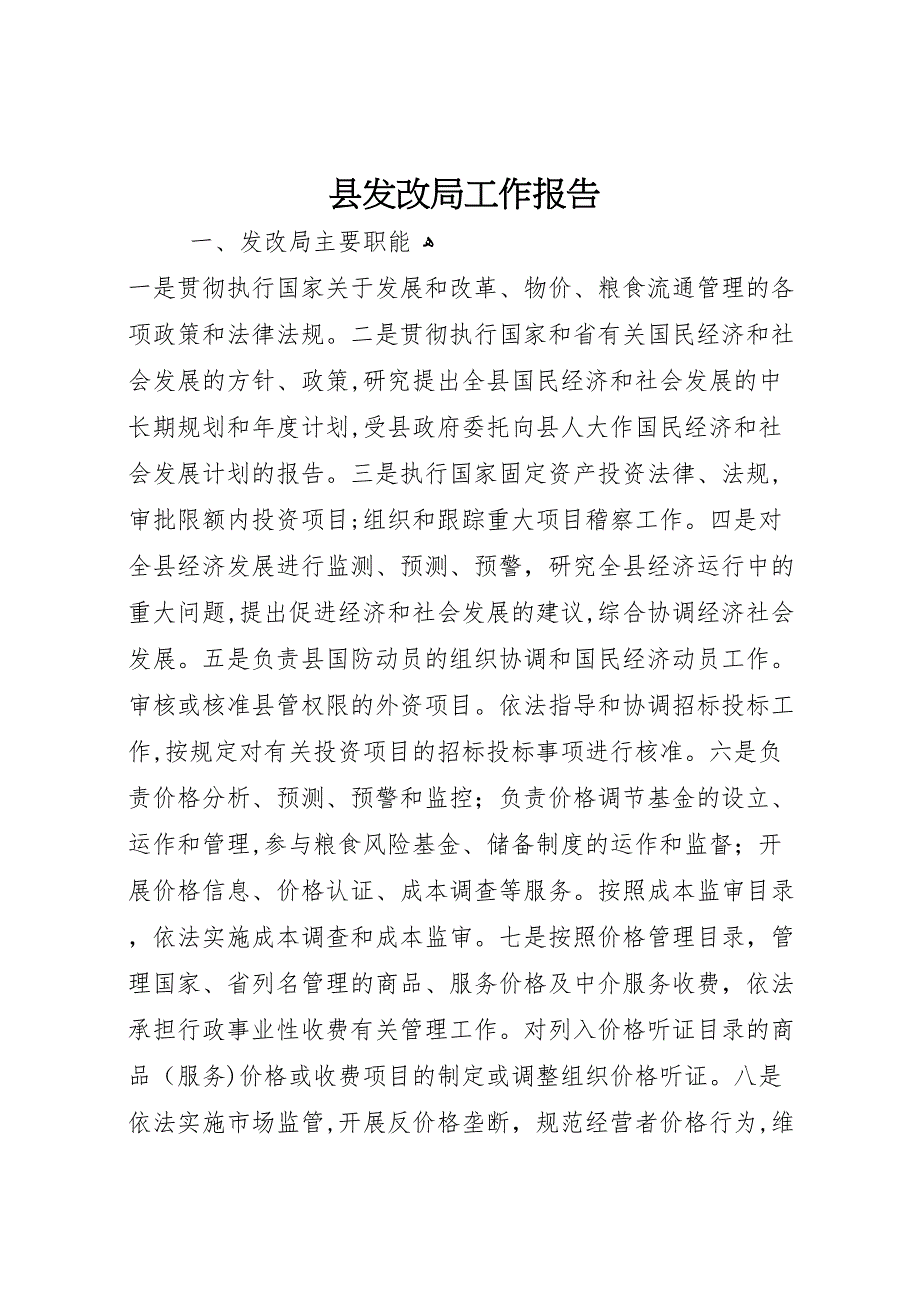 县发改局工作报告
一、发改局主要职能 ﻫ
一是贯彻执行国家关于发展和改革、物价、粮食流通管理的各
项政策和法律法规。二是贯彻执行国家和省有关国民经济和社
会发展的方针、政策,研究提出全县国民经济和社会发展的中
长期规划和年度计划,受县政府委托向县人大作国民经济和社
会发展计划的报告。三是执行国家固定资产投资法律、法规,
审批限额内投资项目;组织和跟踪重大项目稽察工作。四是对
全县经济发展进行监测、预测、预警，研究全县经济运行中的
重大问题,提出促进经济和社会发展的建议,综合协调经济社会
发展。五是负责县国防动员的组织协调和国民经济动员工作。
审核或核准县管权限的外资项目。依法指导和协调招标投标工
作,按规定对有关投资项目的招标投标事项进行核准。六是负
责价格分析、预测、预警和监控；负责价格调节基金的设立、
运作和管理,参与粮食风险基金、储备制度的运作和监督；开
展价格信息、价格认证、成本调查等服务。按照成本监审目录
，依法实施成本调查和成本监审。七是按照价格管理目录，管
理国家、省列名管理的商品、服务价格及中介服务收费，依法
承担行政事业性收费有关管理工作。对列入价格听证目录的商
品（服务)价格或收费项目的制定或调整组织价格听证。八是
依法实施市场监管,开展反价格垄断，规范经营者价格行为,维